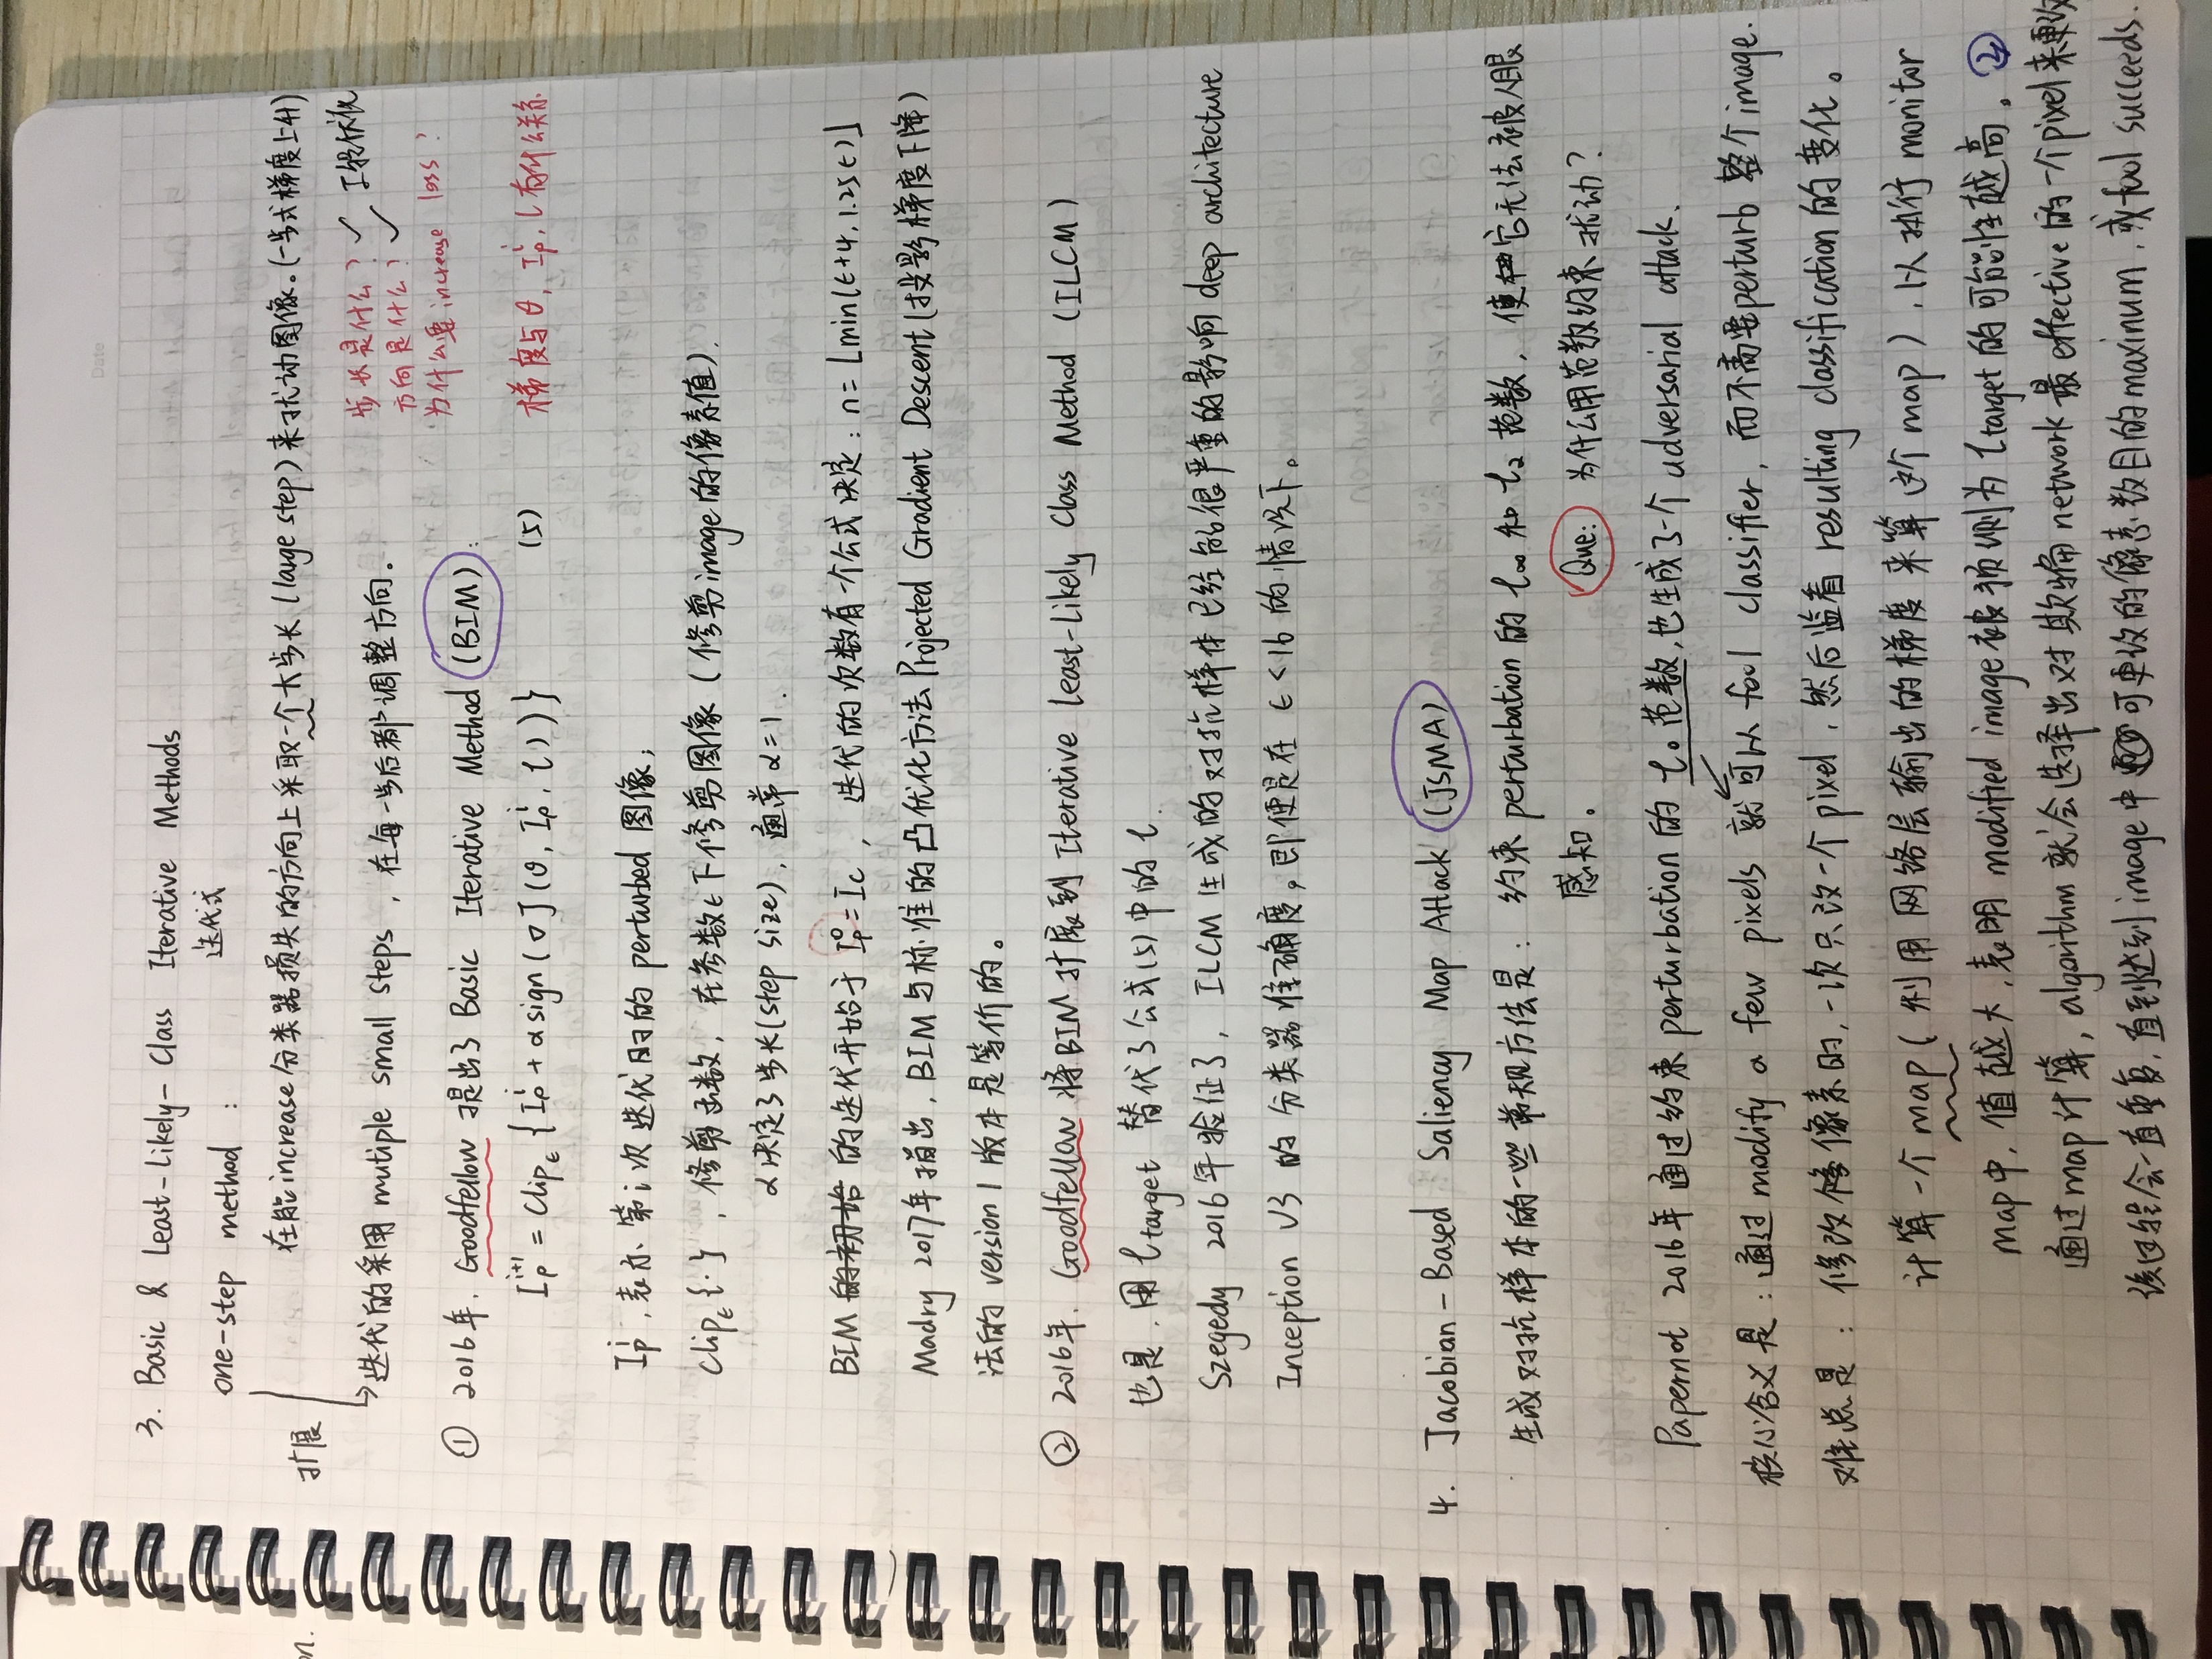 Date
3. Basic & Least-Likely-Class Iterative Methods
迭代式
one-step method :
在能increase分类器损失的方向上采取一个大步长(large step)来扰动图像。(一步式梯度上升)
扩展
步长是什么? ✓
方向是什么? ✓
为什么要increase loss?
→迭代的采用 mutiple small steps, 在每一步后都调整方向。
① 2016年, Goodfellow 提出了 Basic Iterative Method (BIM):
Ip^{i+1} = Clip_ε { Ip^i + α sign(∇J(θ, Ip^i, l)) } (5)
梯度与θ, Ip^i, l 有什么关系
Ip^i, 表示第i次迭代时的 perturbed 图像;
Clip_ε{·}, 修剪函数, 在参数ε下修剪图像 (修剪image的像素值).
α决定了步长(step size), 通常 α=1.
BIM 的初始 的迭代开始于 Ip^0=Ic, 迭代的次数有一个公式决定: n=⌊min(ε+4, 1.25ε)⌋
Madry 2017年指出, BIM与标准的凸优化方法 Projected Gradient Descent(投影梯度下降)
法的 version 1 版本是等价的。
② 2016年, Goodfellow 将BIM扩展到 Iterative Least-Likely Class Method (ILCM)
也是, 用 l target 替代了公式(5)中的 l.
Szegedy 2016年验证了, ILCM生成的对抗样本已经能很严重的影响 deep architecture
Inception V3 的分类器准确度, 即便是在 ε<16 的情况下。
4. Jacobian-Based Saliency Map Attack (JSMA)
生成对抗样本的一些常规方法是: 约束 perturbation 的 l∞ 和 l2 范数, 使它无法被人眼
感知。
Que: 为什么用范数约束扰动?
Papernot 2016年通过约束 perturbation 的 l0范数,也生成了一个 adversarial attack.
核心含义是:通过 modify a few pixels 就可以 fool classifier, 而不需要perturb 整个image.
难点是: 修改像素时,一次只改一个pixel, 然后监看 resulting classification的变化。
计算一个map(利用网络层输出的梯度来算这个map),以执行monitor
map中, 值越大,表明 modified image 被预测为 l target 的可能性越高。②
通过map计算, algorithm就会选择出对欺骗network最effective的一个pixel来更改
该过程会一直重复,直到达到image中可更改的像素数目的maximum,或fool succeeds.